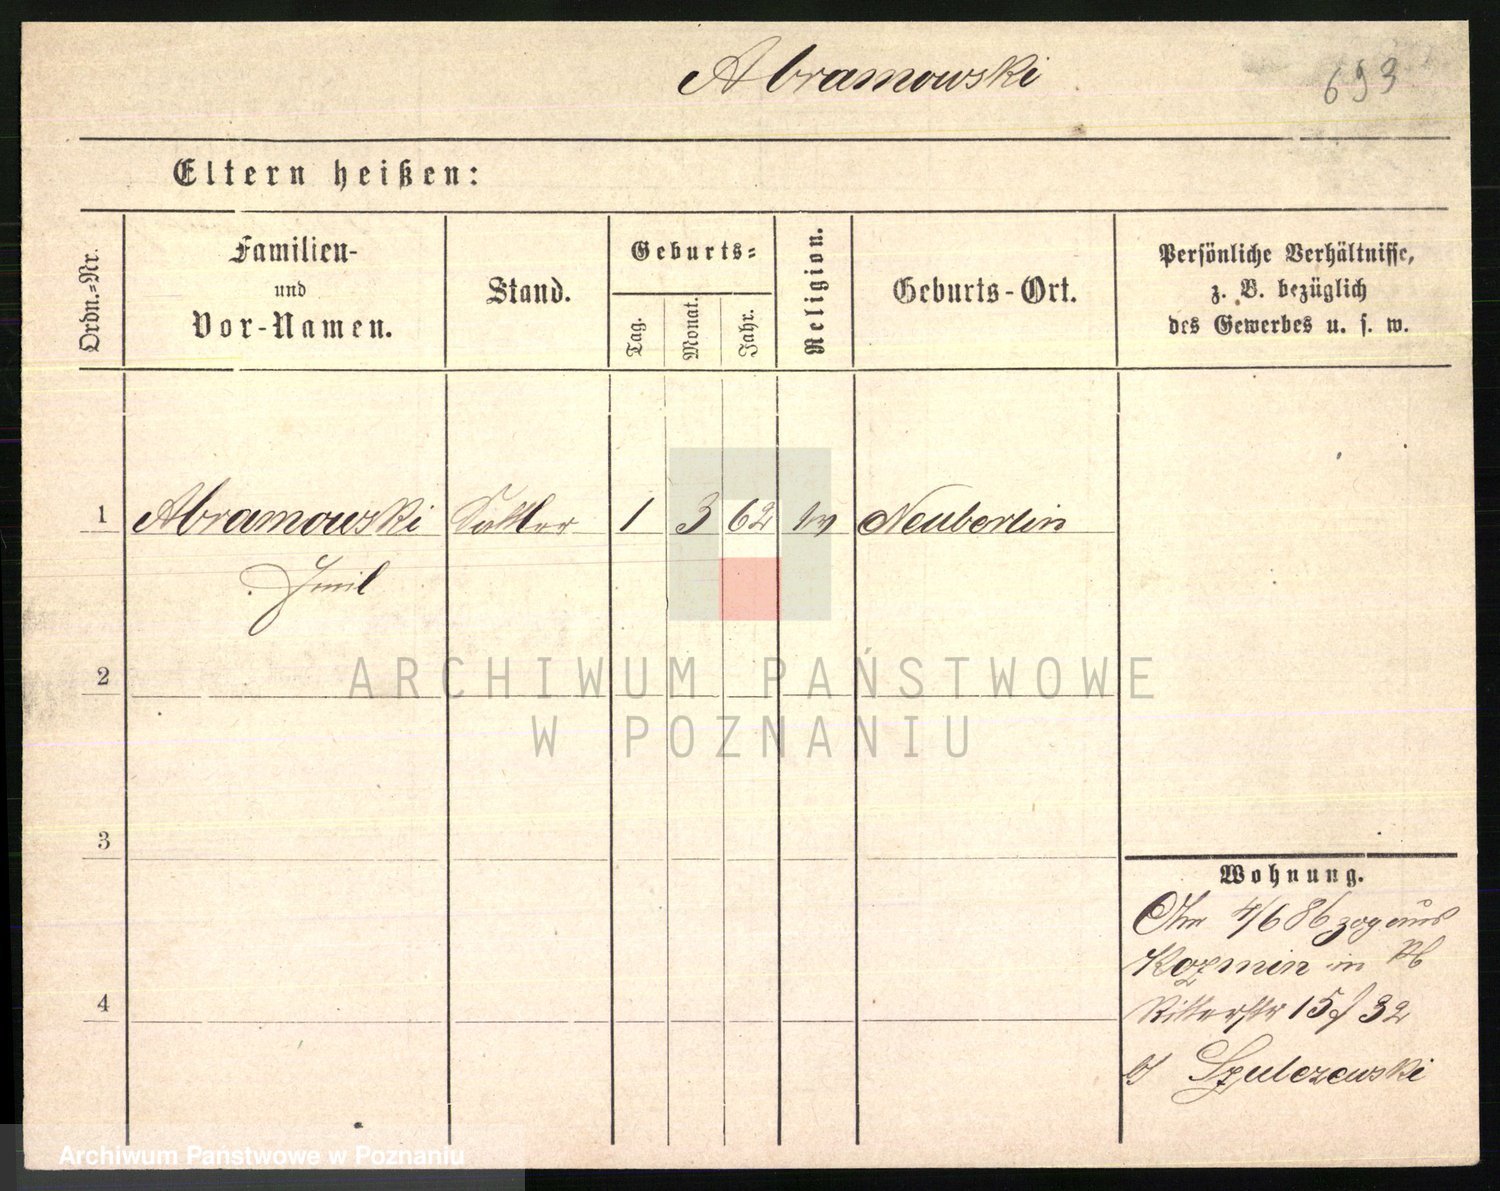 Abramowski
693
Eltern heißen:
Ordn.-Nr.
Familien-
und
Vor-Namen.
Stand.
Geburts-
Tag.
Monat.
Jahr.
Religion.
Geburts-Ort.
Persönliche Verhältnisse,
z. B. bezüglich
des Gewerbes u. s. w.
1 Abramowski Sattler 1 3 62 Neuberlin
2
ARCHIWUM PAŃSTWOWE
W POZNANIU
3
Wohnung.
4/6 86 zog aus
Kozmin in
4
Ritterstr 15 / 32
Szulczewski
Archiwum Państwowe w Poznaniu